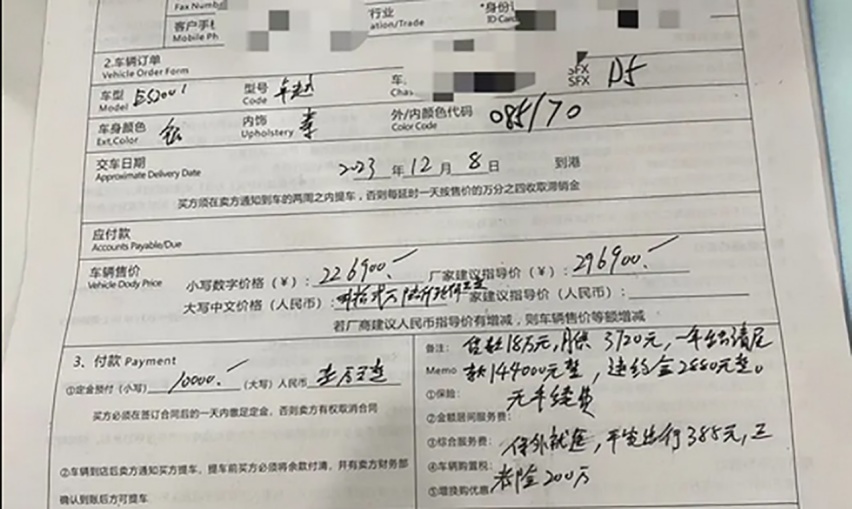 Fax Number
行业
ation/Trade
*身份
ID Card
客户手
Mobile Ph
2.车辆订单
Vehicle Order Form
车型
Model
型号
Code
车
Chas
SFX
SFX
车身颜色
Ext.Color
银
内饰
Upholstery
外/内颜色代码
Color Code
085/70
交车日期
Approximate Delivery Date
2023 年 12 月 8 日 到港
买方须在卖方通知到车的两周之内提车，否则每延时一天按售价的万分之四收取滞销金
应付款
Accounts Payable/Due
车辆售价
Vehicle Dody Price
小写数字价格（¥）：226900.- 厂家建议指导价（¥）：296900.-
大写中文价格（人民币）： 家建议指导价（人民币）：
若厂商建议人民币指导价有增减，则车辆售价等额增减
3. 付款 Payment
①定金预付（小写）10000.- （大写）人民币
买方必须在签订合同后的一天内缴足定金，否则卖方有权取消合同
②车辆到店后卖方通知买方提车，提车前买方必须将余款付清，并有卖方财务部
确认到账后方可提车
备注：贷款18万元，月供 3720元，一年出清尾
Memo 款144000元整，违约金2880元整。
①保险：
无手续费
②金额居间服务费：
③综合服务费：
385元，三
④车辆购置税：
者险200万
⑤增换购优惠：